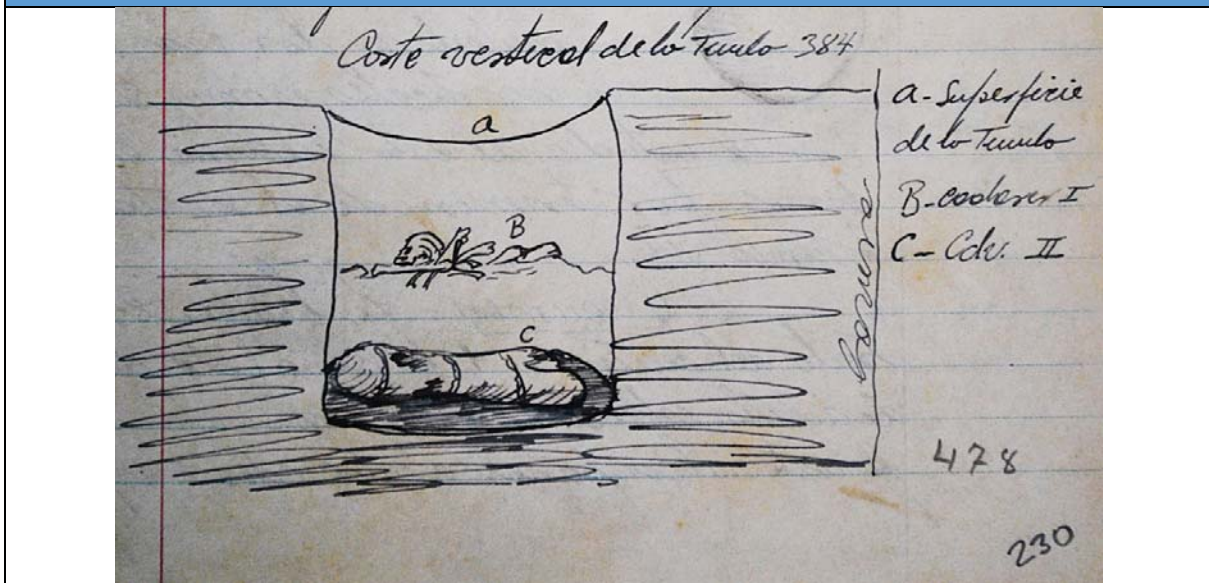 Corte vertical de la Tumba 384
a
B
C
a - Superficie
de la Tumba
B - cadaver I
C - Cdv. II
478
230